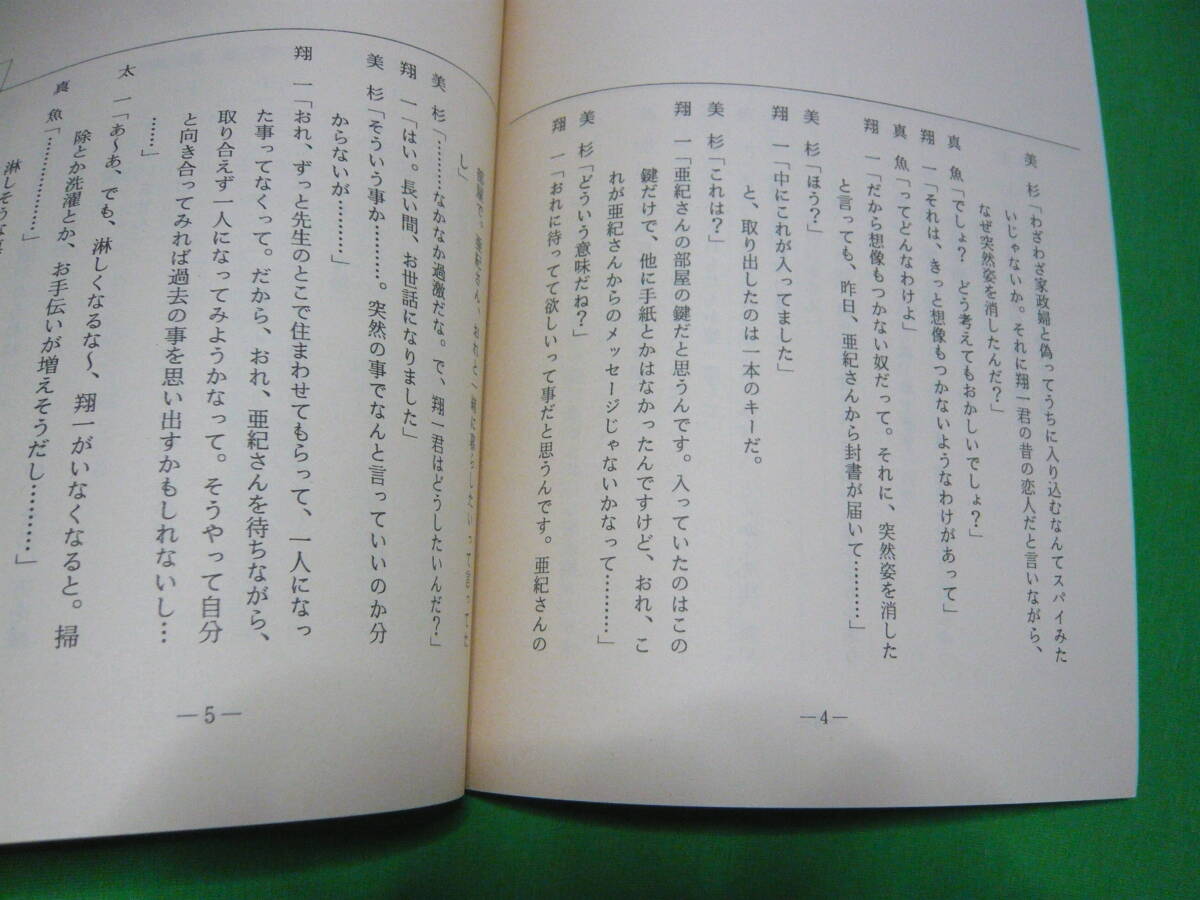 美 杉「わざわざ家政婦と偽ってうちに入り込むなんてスパイみた
いじゃないか。それに翔一君の昔の恋人だと言いながら、
なぜ突然姿を消したんだ？」
真 魚「でしょ？ どう考えてもおかしいでしょ？」
翔 一「それは、きっと想像もつかないようなわけがあって」
真 魚「ってどんなわけよ」
翔 一「だから想像もつかない奴だって。それに、突然姿を消した
と言っても、昨日、亜紀さんから封書が届いて………」
美 杉「ほう？」
翔 一「中にこれが入ってました」
と、取り出したのは一本のキーだ。
美 杉「これは？」
翔 一「亜紀さんの部屋の鍵だと思うんです。入っていたのはこの
鍵だけで、他に手紙とかはなかったんですけど、おれ、こ
れが亜紀さんからのメッセージじゃないかなって………」
美 杉「どういう意味だね？」
翔 一「おれに待ってて欲しいって事だと思うんです。亜紀さんの
―4―
部屋で。亜紀さん、おれと一緒に暮らしたいって言ってた
し」
美 杉「………なかなか過激だな。で、翔一君はどうしたいんだ？」
翔 一「はい。長い間、お世話になりました」
美 杉「そういう事か………。突然の事でなんと言っていいのか分
からないが………」
翔 一「おれ、ずっと先生のとこで住まわせてもらって、一人になっ
た事ってなくって。だから、おれ、亜紀さんを待ちながら、
取り合えず一人になってみようかなって。そうやって自分
と向き合ってみれば過去の事を思い出すかもしれないし…
……」
太 一「あ～あ、でも、淋しくなるな～、翔一がいなくなると。掃
除とか洗濯とか、お手伝いが増えそうだし………」
真 魚「……………」
淋しそうな真
―5―